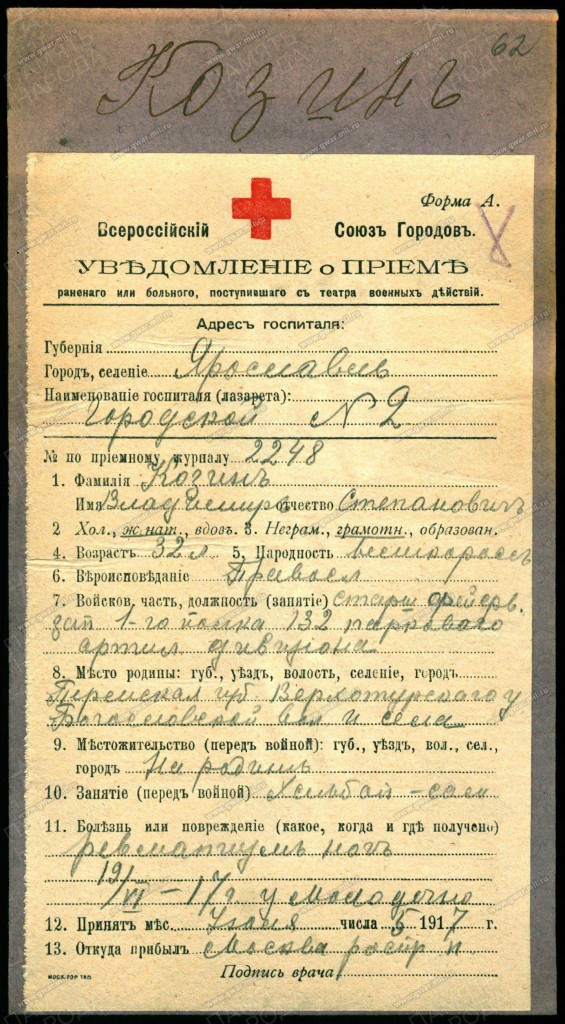 62
Козинъ
Форма А.
Всероссійскій Союзъ Городовъ.
УВѢДОМЛЕНІЕ о ПРІЕМѢ
раненаго или больного, поступившаго съ театра военныхъ дѣйствій.
Адресъ госпиталя:
Губернія
Городъ, селеніе Ярославль
Наименованіе госпиталя (лазарета):
Городской № 2
№ по пріемному журналу 2248
1. Фамилія Козинъ
Имя Владимиръ отчество Степановичъ
2 Хол., ж нат., вдовъ. 3. Неграм., грамотн., образован.
4. Возрастъ 32 л 5, Народность
6. Вѣроисповѣданіе Правосл
7. Войсков, часть, должность (занятіе) Старш фейерв.
зап 1-го полка 132 паркового
артил дивизіона
8. Мѣсто родины: губ., уѣздъ, волость, селеніе, городъ
Пермская губ Верхотурскаго у
Богословской вол и села
9. Мѣстожительство (передъ войной): губ., уѣздъ, вол., сел.,
городъ На родинѣ
10. Занятіе (передъ войной)
11. Болѣзнь или поврежденіе (какое, когда и гдѣ получено)
ревматизмъ ногъ
VI – 17 г у Молодечно
12. Принятъ мѣс. Іюня числа 5 1917 г.
13. Откуда прибылъ Москва распр п
Подпись врача